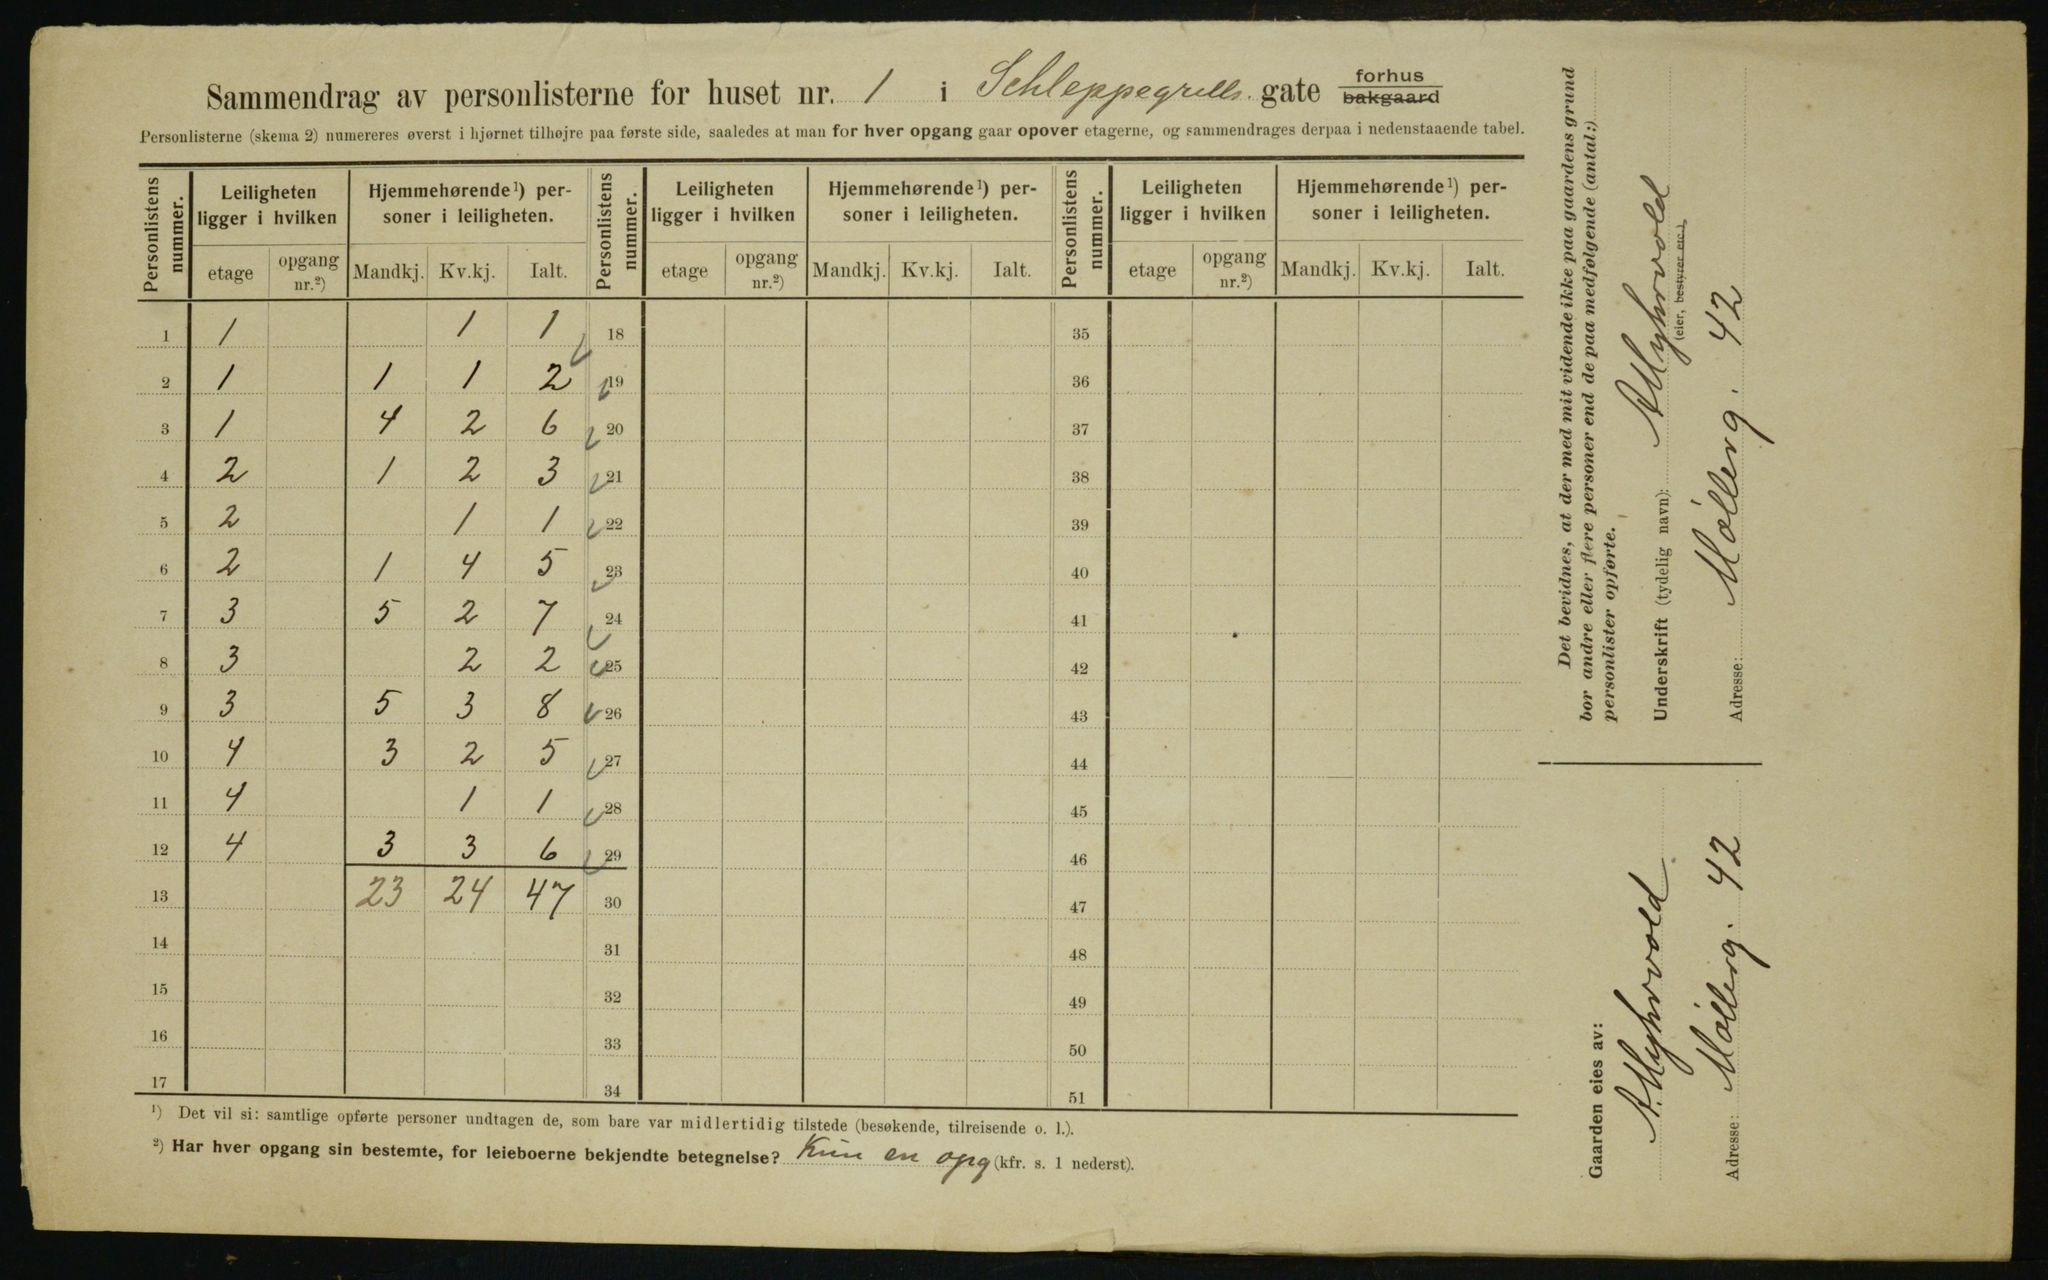 Sammendrag av personlisterne for huset nr. 1 i Schleppegrells gate forhus
bakgaard
Personlisterne (skema 2) numereres øverst i hjørnet tilhøjre paa første side, saaledes at man for hver opgang gaar opover etagerne, og sammendrages derpaa i nedenstaaende tabel.
Personlistens nummer. Leiligheten ligger i hvilken Hjemmehørende¹) personer i leiligheten. Personlistens nummer. Leiligheten ligger i hvilken Hjemmehørende¹) personer i leiligheten. Personlistens nummer. Leiligheten ligger i hvilken Hjemmehørende¹) personer i leiligheten.
etage opgang nr.²) Mandkj. Kv.kj. Ialt. etage opgang nr.²) Mandkj. Kv.kj. Ialt. etage opgang nr.²) Mandkj. Kv.kj. Ialt.
1 1 1 1 18 35
2 1 1 1 2 19 36
3 1 4 2 6 20 37
4 2 1 2 3 21 38
5 2 1 1 22 39
6 2 1 4 5 23 40
7 3 5 2 7 24 41
8 3 2 2 25 42
9 3 5 3 8 26 43
10 4 3 2 5 27 44
11 4 1 1 28 45
12 4 3 3 6 29 46
13 23 24 47 30 47
14 31 48
15 32 49
16 33 50
17 34 51
¹) Det vil si: samtlige opførte personer undtagen de, som bare var midlertidig tilstede (besøkende, tilreisende o. l.).
²) Har hver opgang sin bestemte, for leieboerne bekjendte betegnelse? Kun en opg (kfr. s. 1 nederst).
Det bevidnes, at der med mit vidende ikke paa gaardens grund
bor andre eller flere personer end de paa medfølgende (antal:)
personlister opførte.
Underskrift (tydelig navn): A Myhrvold
(eier, bestyrer etc.)
Adresse: Møllerg. 42
Gaarden eies av:
A. Myhrvold
Adresse: Møllerg. 42